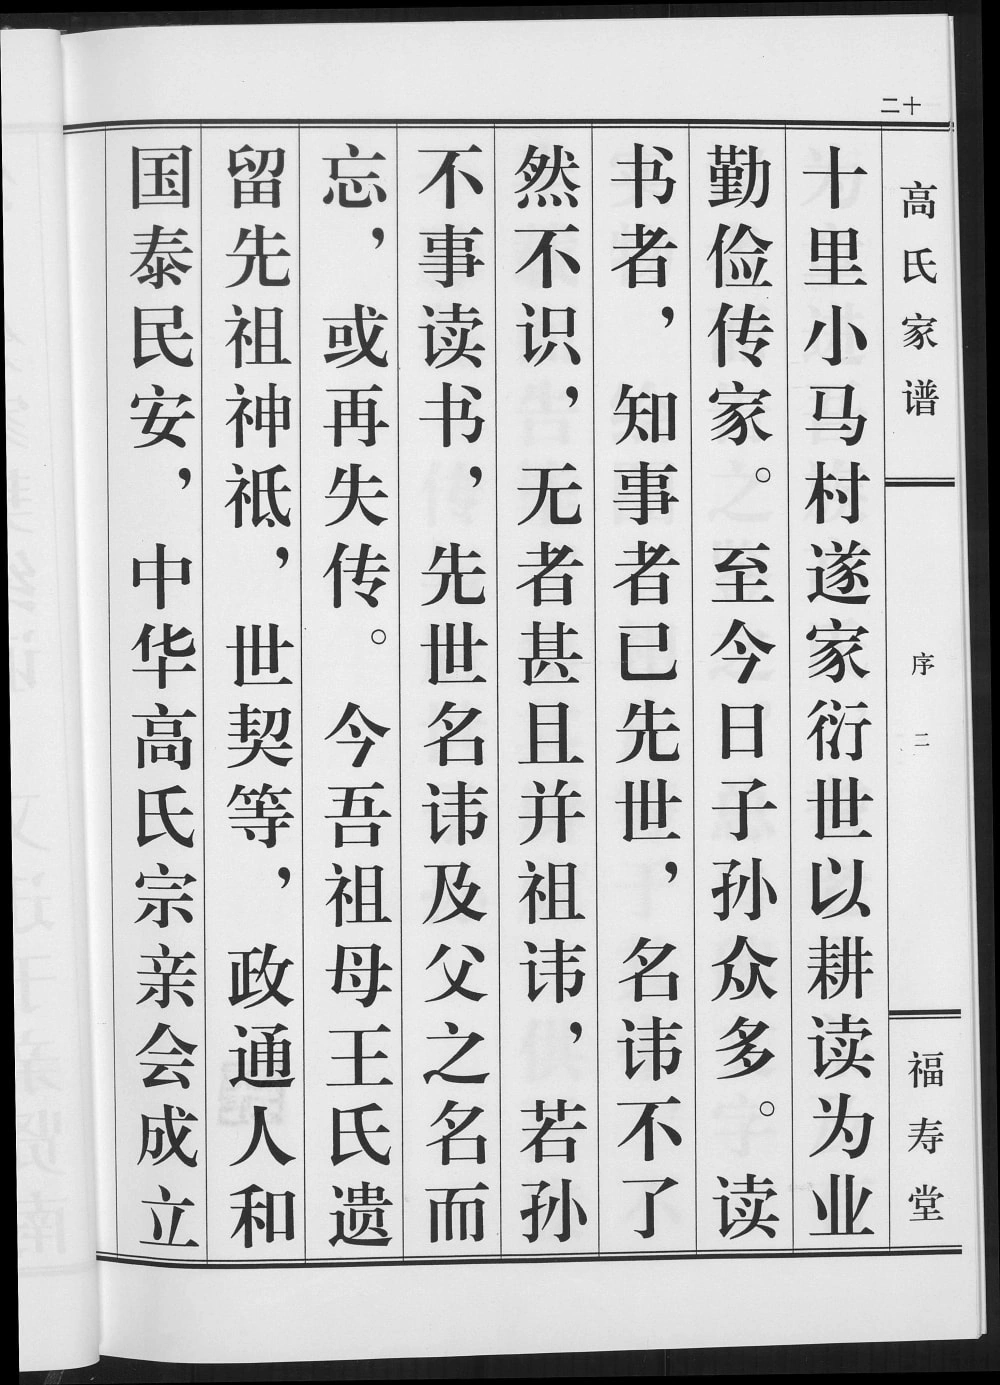 二十
高氏家谱
序二
福寿堂
十里小马村遂家衍世以耕读为业
勤俭传家。至今日子孙众多。读
书者，知事者已先世，名讳不了
然不识，无者甚且并祖讳，若孙
不事读书，先世名讳及父之名而
忘，或再失传。今吾祖母王氏遗
留先祖神祗，世契等，政通人和
国泰民安，中华高氏宗亲会成立